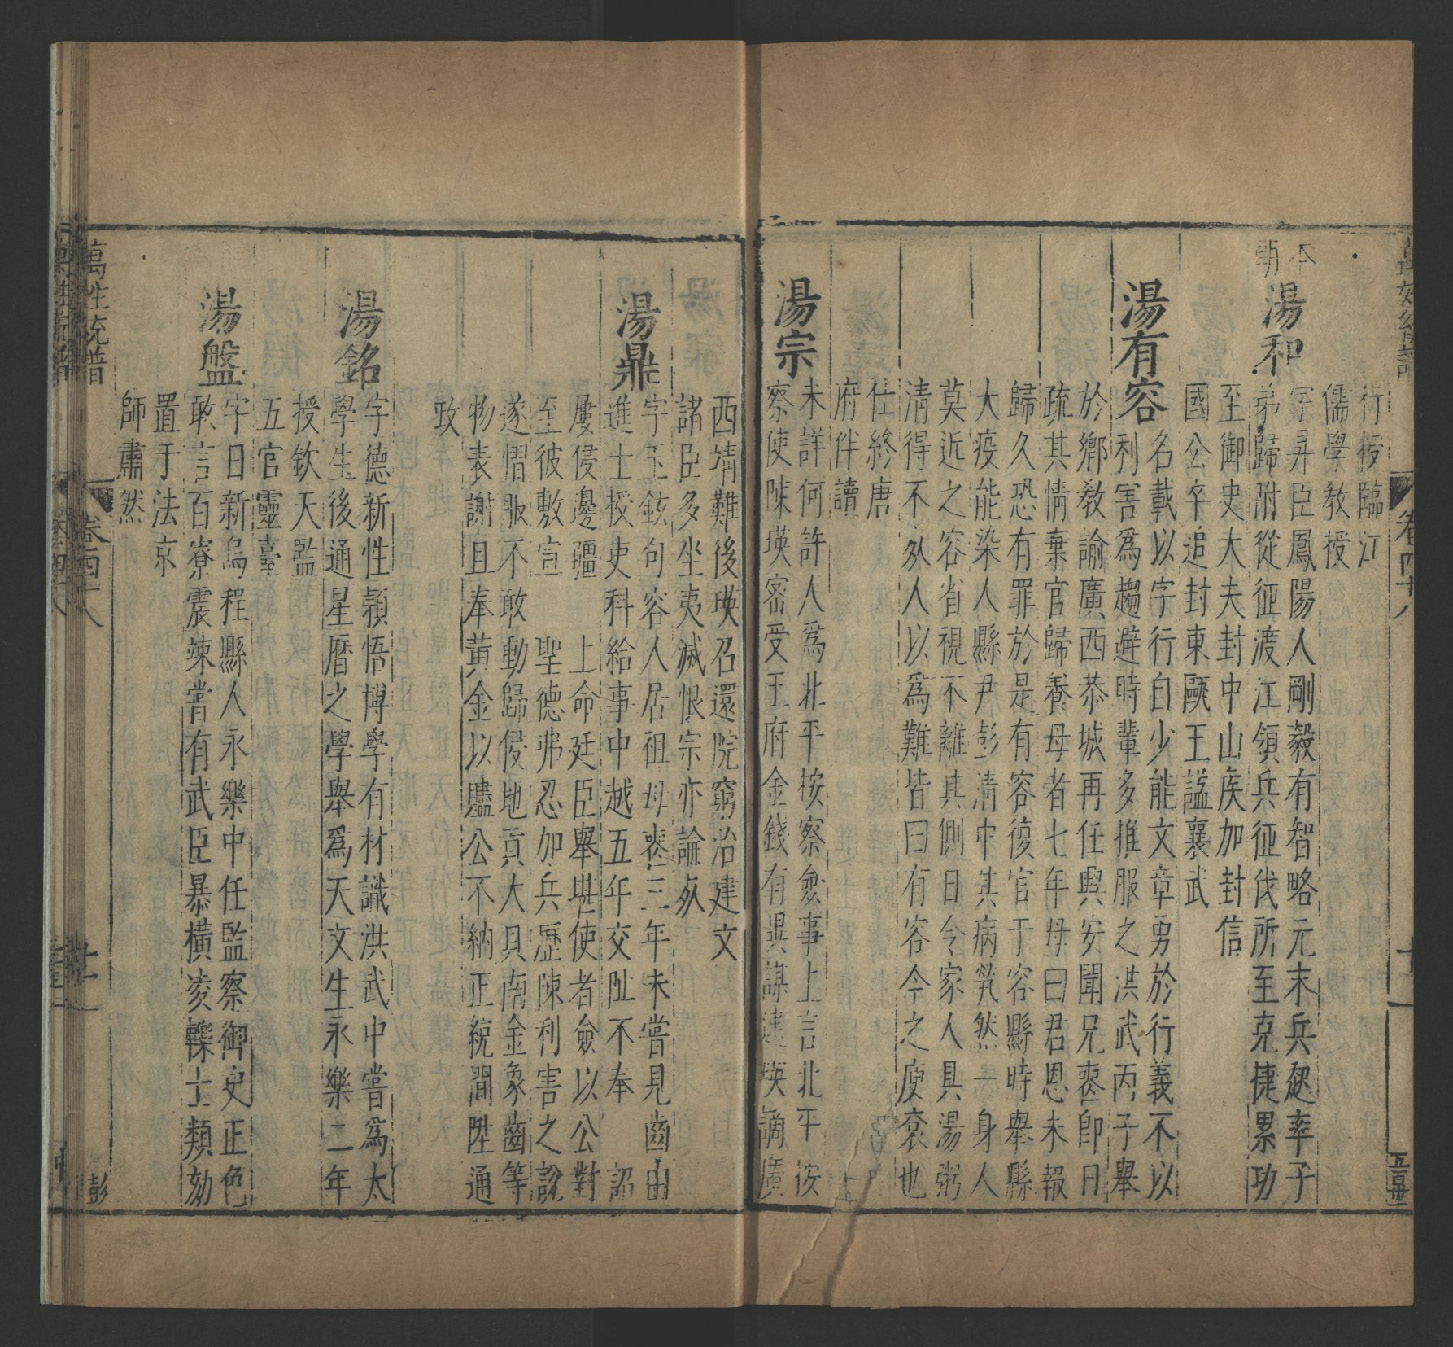 行授臨江
儒學教授
本朝
湯和
字昇臣鳳陽人剛毅有智略元末兵起率子
弟歸附從征渡江領兵征伐所至克捷累功
至御史大夫封中山矦加封信
國公卒追封東甌王諡襄武
湯有容
名載以字行自少能文章勇於行義不以
利害爲趨避時輩多推服之洪武丙子舉
於鄉敎諭廣西恭城再任興安聞兄喪即日
疏其情棄官歸養母者七年母曰君恩未報
歸久恐有罪於是有容復官于容縣時舉縣
大疫能染人縣尹彭清中其病煢然一身人
莫近之容省視不離其側日令家人具湯粥
清得不死人以爲難皆曰有容今之庾袞也
仕終唐
府伴讀
湯宗
未詳何許人爲北平按察僉事上言北平按
察使陳瑛密受王府金錢有異謀逮瑛謫廣
西靖難後瑛召還院窮治建文
諸臣多坐夷滅恨宗亦論死
湯鼎
字玉鉉句容人居祖母喪三年未嘗見齒由
進士授吏科給事中越五年交阯不奉 詔
屢侵邊疆 上命廷臣舉堪使者僉以公對
至彼敷宣 聖德弗忍加兵歷陳利害之說
遂慴服不敢動歸侵地貢大貝南金象齒等
物表謝且奉黃金以贐公不納正統間陞通
政
湯銘
字德新性穎悟博學有材識洪武中嘗爲太
學生後通星曆之學舉爲天文生永樂二年
授欽天監
五官靈臺
湯盤
字日新烏程縣人永樂中任監察御史正色
敢言百寮震竦嘗有武臣暴橫凌轢士類劾
置于法京
師肅然
萬姓統譜
卷四十八
彭